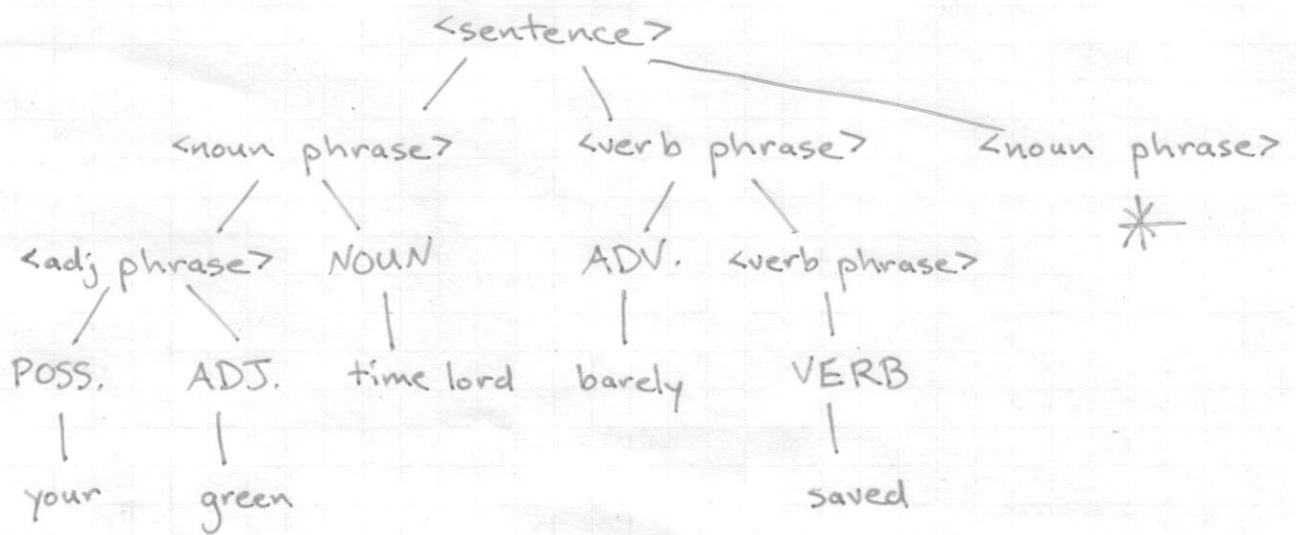 <sentence>
<noun phrase> <verb phrase> <noun phrase>
<adj phrase> NOUN ADV. <verb phrase> *
POSS. ADJ. time lord barely VERB
your green saved